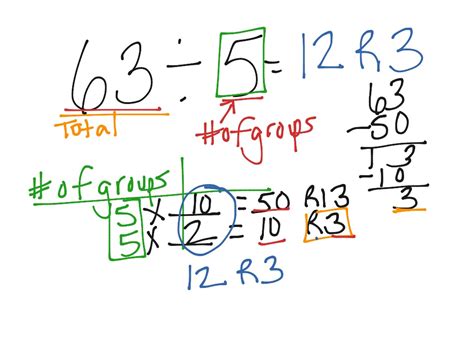 63 ÷ 5 = 12 R3
Total
# of groups
63
-50
13
-10
3
# of groups
5 x 10 = 50 R13
5 x 2 = 10 R3
12 R3